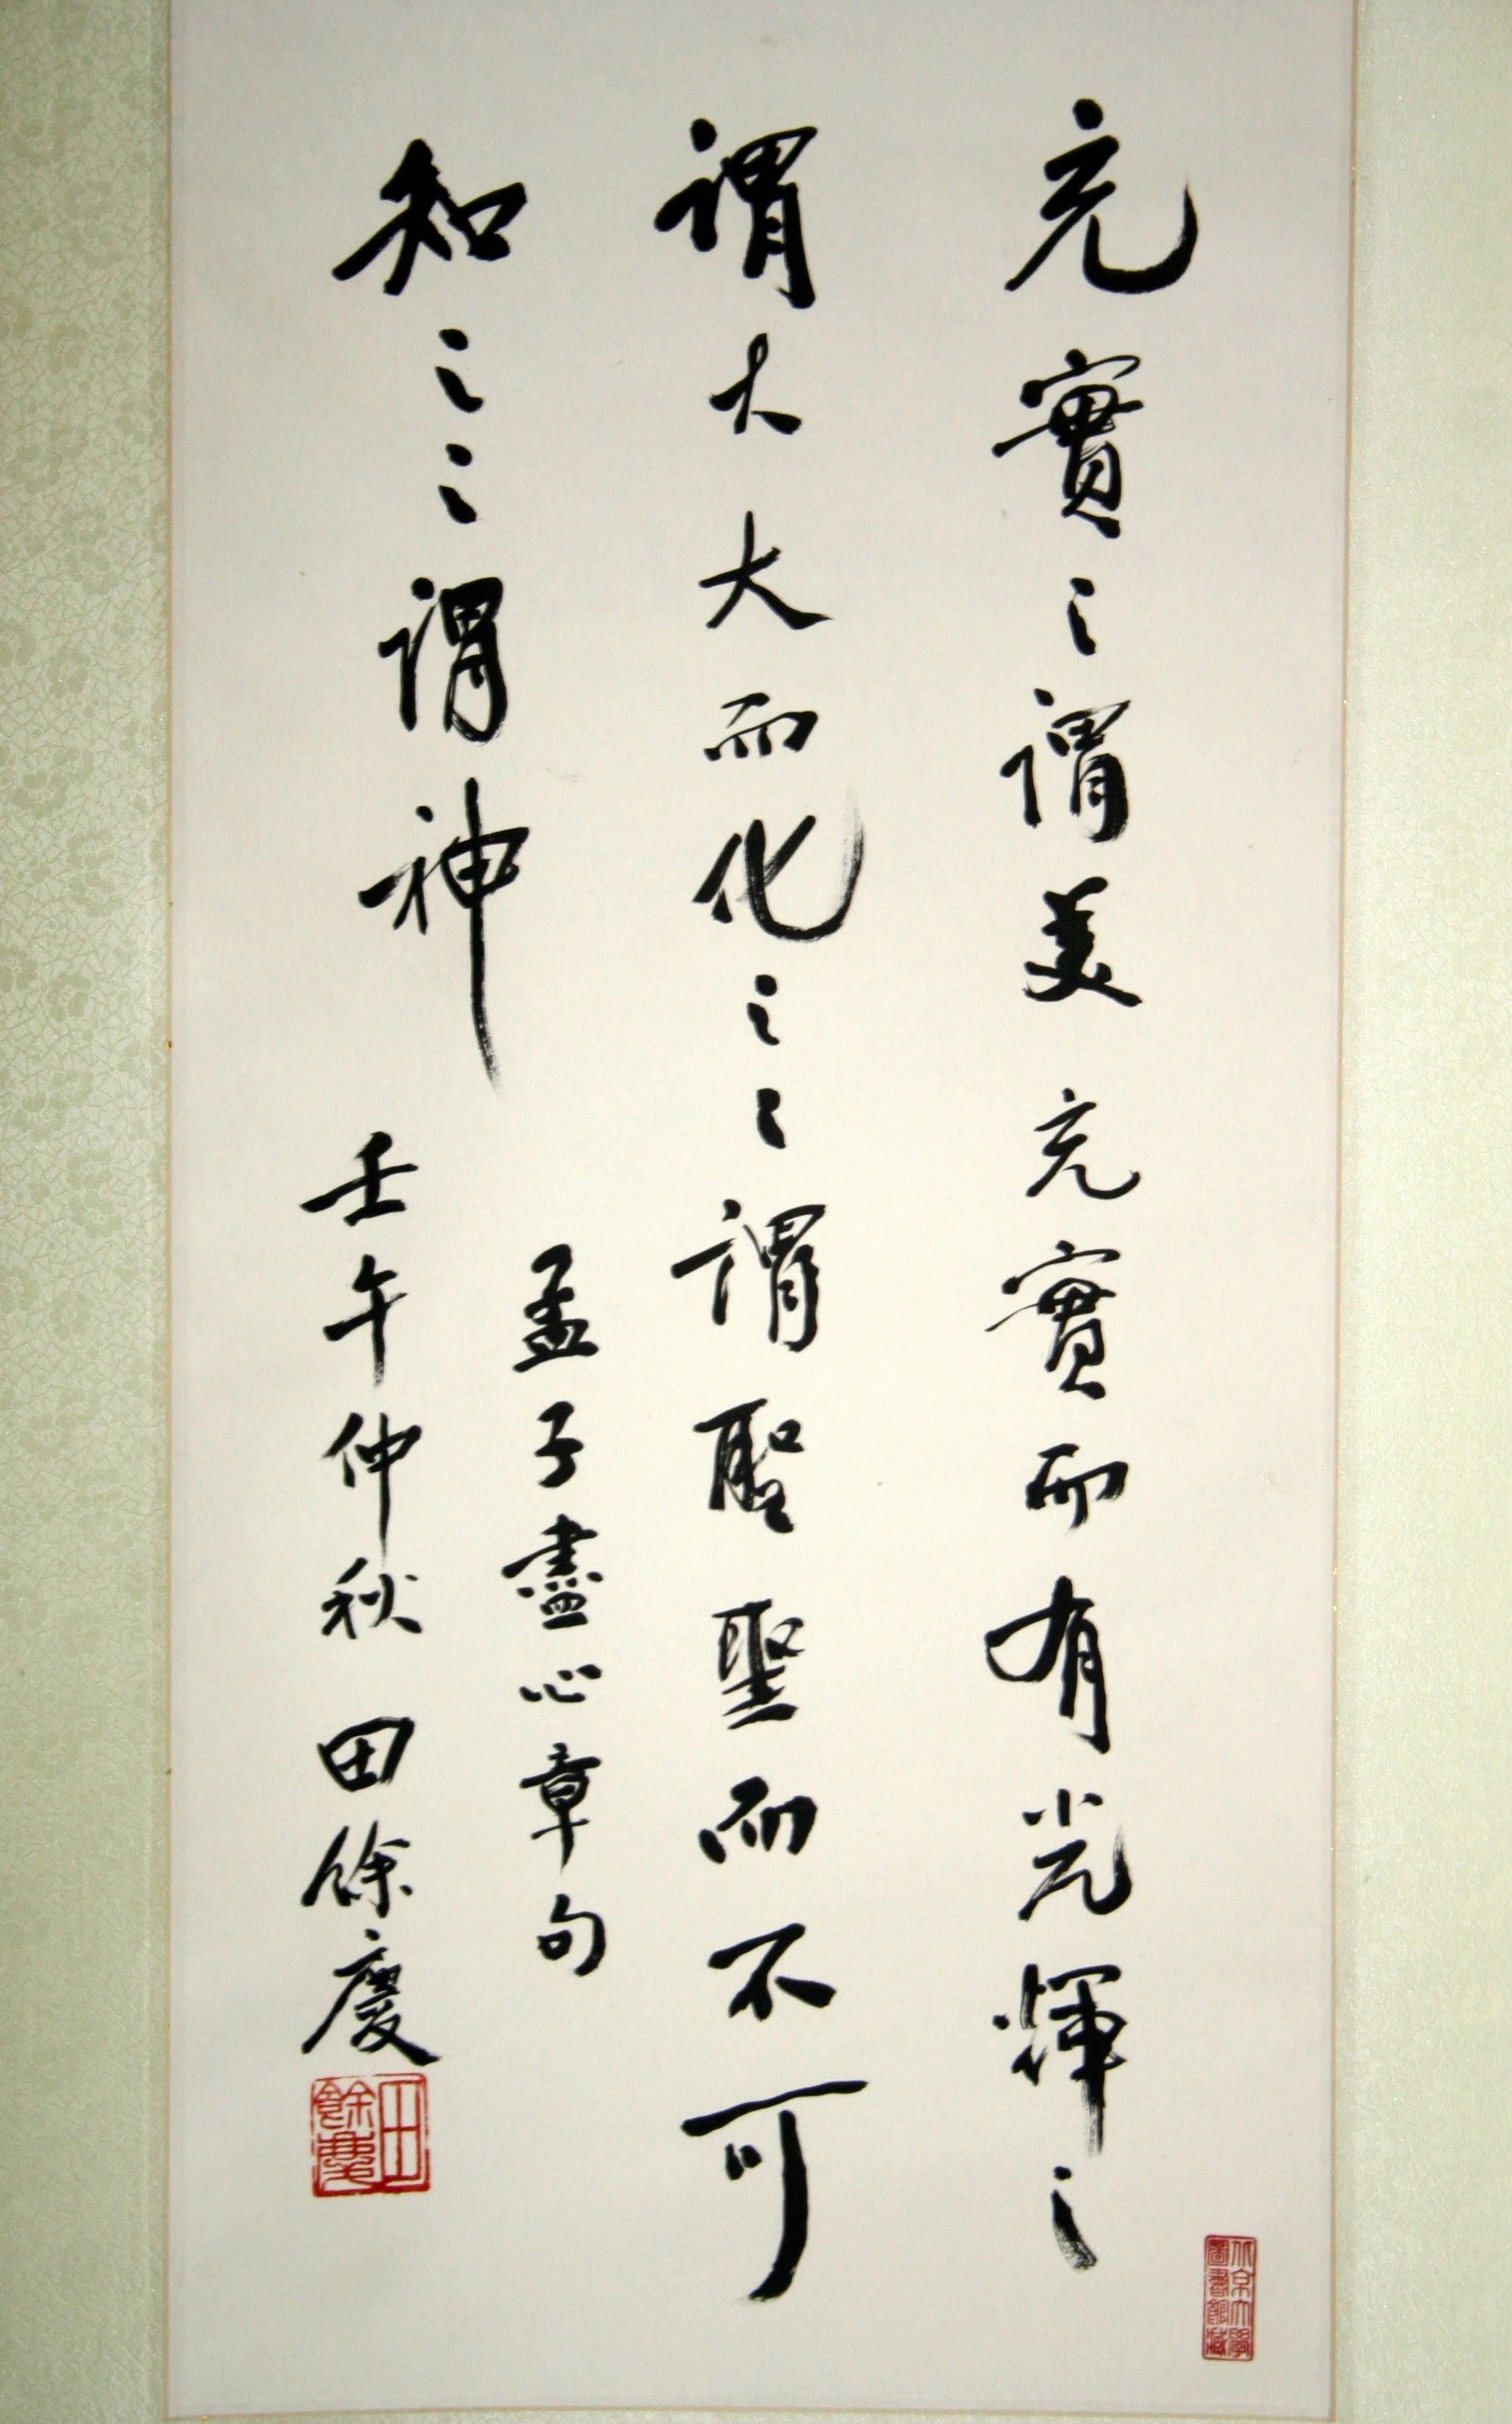 充實之謂美充實而有光輝之
謂大大而化之之謂聖聖而不可
知之之謂神
孟子盡心章句
壬午仲秋 田餘慶
田餘慶
北京大學圖書館藏